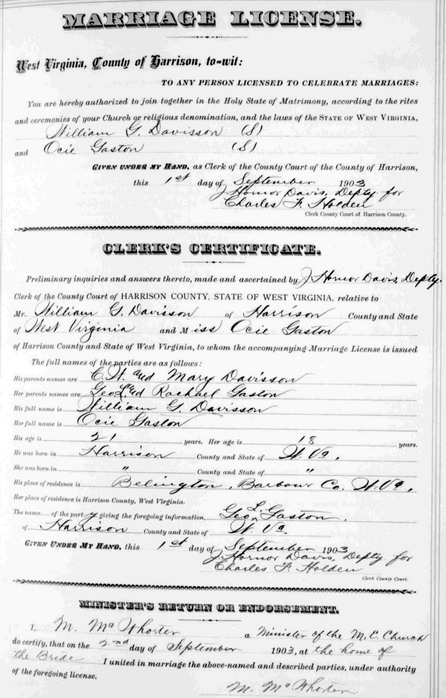 MARRIAGE LICENSE.
West Virginia, County of Harrison, to-wit:
TO ANY PERSON LICENSED TO CELEBRATE MARRIAGES:
You are hereby authorized to join together in the Holy State of Matrimony, according to the rites
and ceremonies of your Church or religious denomination, and the laws of the STATE OF WEST VIRGINIA,
William G. Davisson (S)
and Ocie Gaston (S)
GIVEN UNDER MY HAND, as Clerk of the County Court of the County of Harrison,
this 1st day of September 1903
J Hornor Davis, Depty for
Charles F. Holden
Clerk County Court of Harrison County.
CLERK'S CERTIFICATE.
Preliminary inquiries and answers thereto, made and ascertained by J Hornor Davis, Depty.
Clerk of the County Court of HARRISON COUNTY, STATE OF WEST VIRGINIA, relative to
Mr. William G. Davisson of Harrison County and State
of West Virginia and Miss Ocie Gaston
of Harrison County and State of West Virginia, to whom the accompanying Marriage License is issued
The full names of the parties are as follows:
His parents names are and Mary Davisson
Her parents names are Geo L. and Rachael Gaston
His full name is William G. Davisson
Her full name is Ocie Gaston
His age is 21 years. Her age is 18 years.
He was born in Harrison County and State of W. Va.
She was born in " County and State of "
His place of residence is Belington, Barbour Co. W. Va.
Her place of residence is Harrison County, West Virginia.
The name of the party giving the foregoing information, Geo. L. Gaston.
of Harrison County and State of W. Va.
GIVEN UNDER MY HAND, this 1st day of September 1903
J Hornor Davis, Depty for
Charles F. Holden
Clerk County Court.
MINISTER'S RETURN OR ENDORSEMENT.
I, M. McWhorter a Minister of the M.E. Church
do certify, that on the 2nd day of September 1903, at the home of
the Bride I united in marriage the above-named and described parties, under authority
of the foregoing license.
M. McWhorter